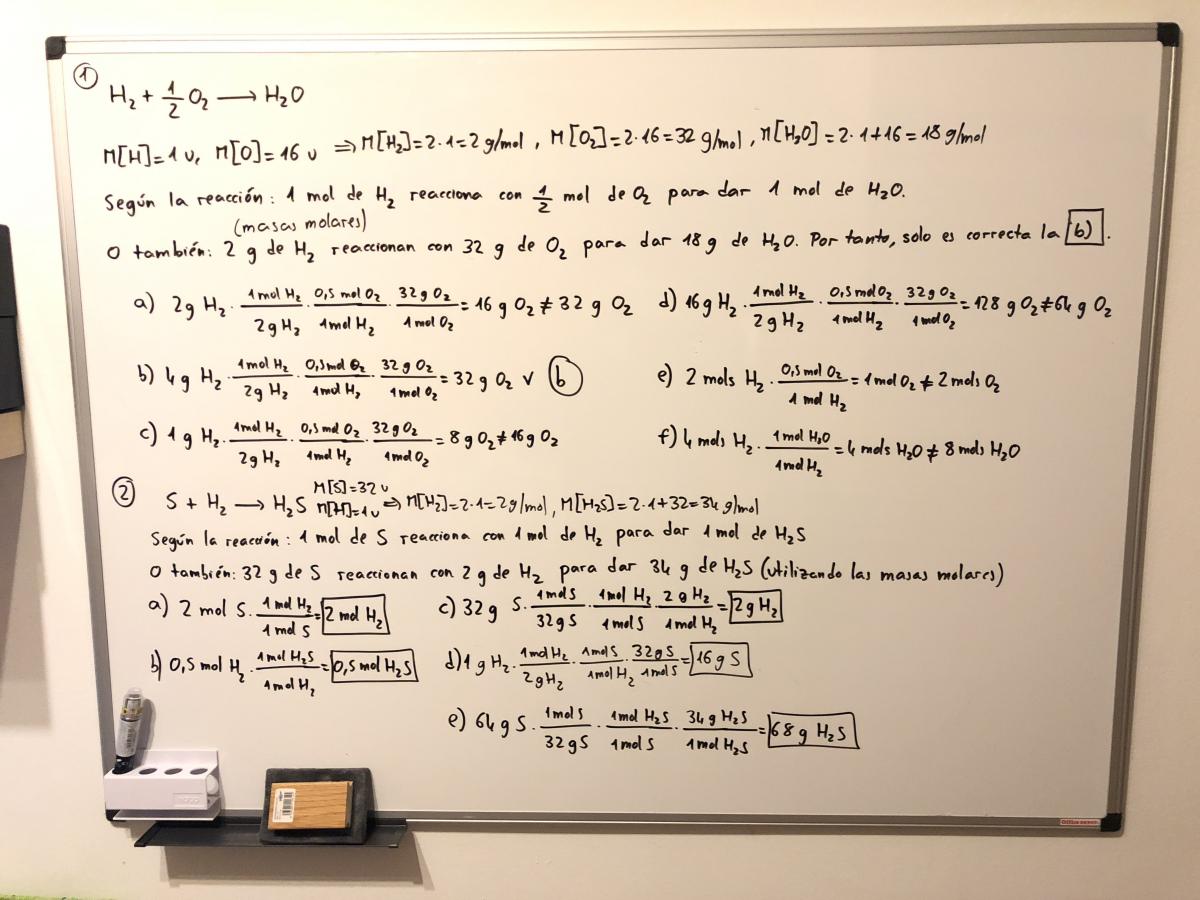 ① H₂ + 1/2 O₂ ⟶ H₂O
M[H]=1 u, M[O]=16 u ⇒ M[H₂]=2·1=2 g/mol , M[O₂]=2·16=32 g/mol , M[H₂O]=2·1+16=18 g/mol
Según la reacción: 1 mol de H₂ reacciona con 1/2 mol de O₂ para dar 1 mol de H₂O.
(masas molares)
O también: 2 g de H₂ reaccionan con 32 g de O₂ para dar 18 g de H₂O. Por tanto, solo es correcta la b).
a) 2g H₂ · 1mol H₂/2g H₂ · 0,5 mol O₂/1mol H₂ · 32g O₂/1mol O₂ = 16 g O₂ ≠ 32 g O₂
b) 4g H₂ · 1mol H₂/2g H₂ · 0,5mol O₂/1mol H₂ · 32g O₂/1mol O₂ = 32g O₂ √ b
c) 1g H₂ · 1mol H₂/2g H₂ · 0,5 mol O₂/1mol H₂ · 32g O₂/1mol O₂ = 8g O₂ ≠ 16g O₂
d) 16g H₂ · 1mol H₂/2g H₂ · 0,5mol O₂/1mol H₂ · 32g O₂/1mol O₂ = 128 g O₂ ≠ 64 g O₂
e) 2 mols H₂ · 0,5 mol O₂/1 mol H₂ = 1 mol O₂ ≠ 2 mols O₂
f) 4 mols H₂ · 1mol H₂O/1mol H₂ = 4 mols H₂O ≠ 8 mols H₂O
② S + H₂ ⟶ H₂S M[S]=32 u M[H]=1 u ⇒ M[H₂]=2·1=2g/mol, M[H₂S]=2·1+32=34 g/mol
Según la reacción: 1 mol de S reacciona con 1 mol de H₂ para dar 1 mol de H₂S
O también: 32 g de S reaccionan con 2 g de H₂ para dar 34 g de H₂S (utilizando las masas molares)
a) 2 mol S · 1 mol H₂/1 mol S = 2 mol H₂
b) 0,5 mol H₂ · 1mol H₂S/1mol H₂ = 0,5 mol H₂S
c) 32 g S · 1mol S/32g S · 1mol H₂/1mol S · 2 g H₂/1mol H₂ = 2g H₂
d) 1 g H₂ · 1mol H₂/2g H₂ · 1mol S/1mol H₂ · 32g S/1mol S = 16 g S
e) 64 g S · 1mol S/32g S · 1mol H₂S/1mol S · 34g H₂S/1mol H₂S = 68 g H₂S
Office DEPOT